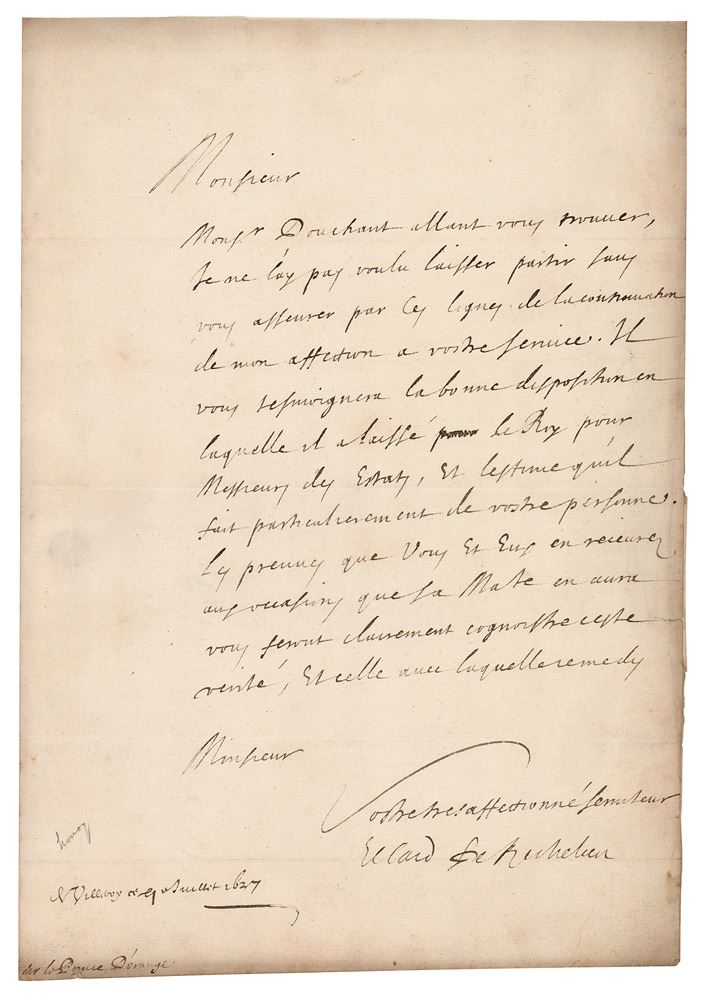 Monsieur
Monsr Douchant allant vous trouver,
Je ne l'ay pas voulu laisser partir sans
vous asseurer par ces lignes de la continuation
de mon affection a vostre service. Il
vous tesmoignera la bonne disposition en
laquelle il a laissé le Roy pour
Messieurs des Estats, Et lestime qu'il
fait particulierement de vostre personne.
Les preuves que Vous Et Eux en recevrez
aux occasions que sa Maté en aura
vous feront clairement cognoistre ceste
verité, Et celle avec laquelle je me dis
Monsieur
Vostre tres affectionné serviteur
Le Card de Richelieu
A Villeroy ce Juillet 1627
Mr le Prince D'orange.